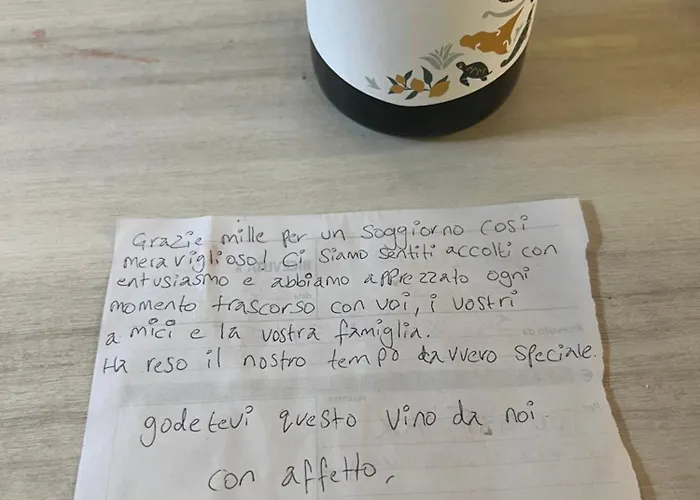 Grazie mille per un soggiorno così
meraviglioso! Ci siamo sentiti accolti con
entusiasmo e abbiamo apprezzato ogni
momento trascorso con voi, i vostri
amici e la vostra famiglia.
Ha reso il nostro tempo davvero speciale.
godetevi questo vino da noi.
con affetto,